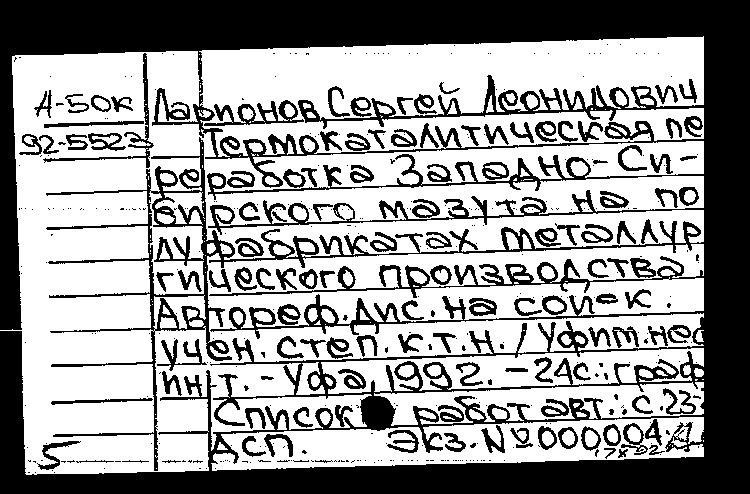 А-50к Ларионов, Сергей Леонидович
92-5523 Термокаталитическая пе
реработка Западно-Си-
бирского мазута на по
луфабрикатах металлур
гического производства:
Автореф. дис. на сойск.
учен. степ. к.т.н. / Уфим. неф
ин-т. - Уфа, 1992. - 24с.: граф
Список работ авт.: с. 23
5 ДСП. Экз. № 000004